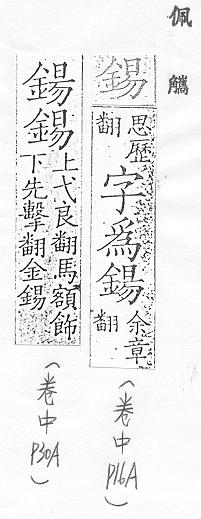 佩觿
錫思歷翻字爲鍚余章翻
(卷中P16A)
鍚錫上弋良翻馬額飾下先擊翻金錫
(卷中P30A)